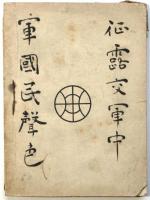 征露交軍中
軍國民聲色